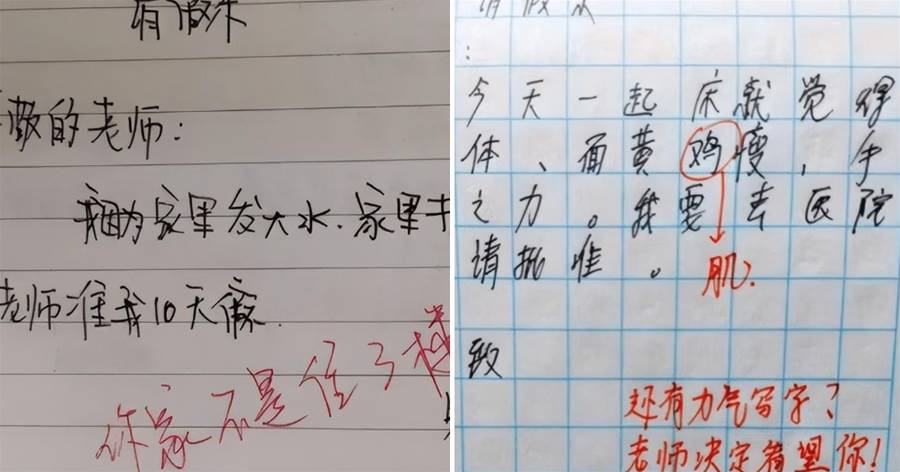 请假条
敬的老师:
我因为家里发大水.家里
老师准我10天假.
你家不是住了楼
请假条
:
今天一起床就觉得
体、面黄鸡瘦,手
之力。我要去医院
请批准。
肌.
致
还有力气写字?
老师决定看望你!